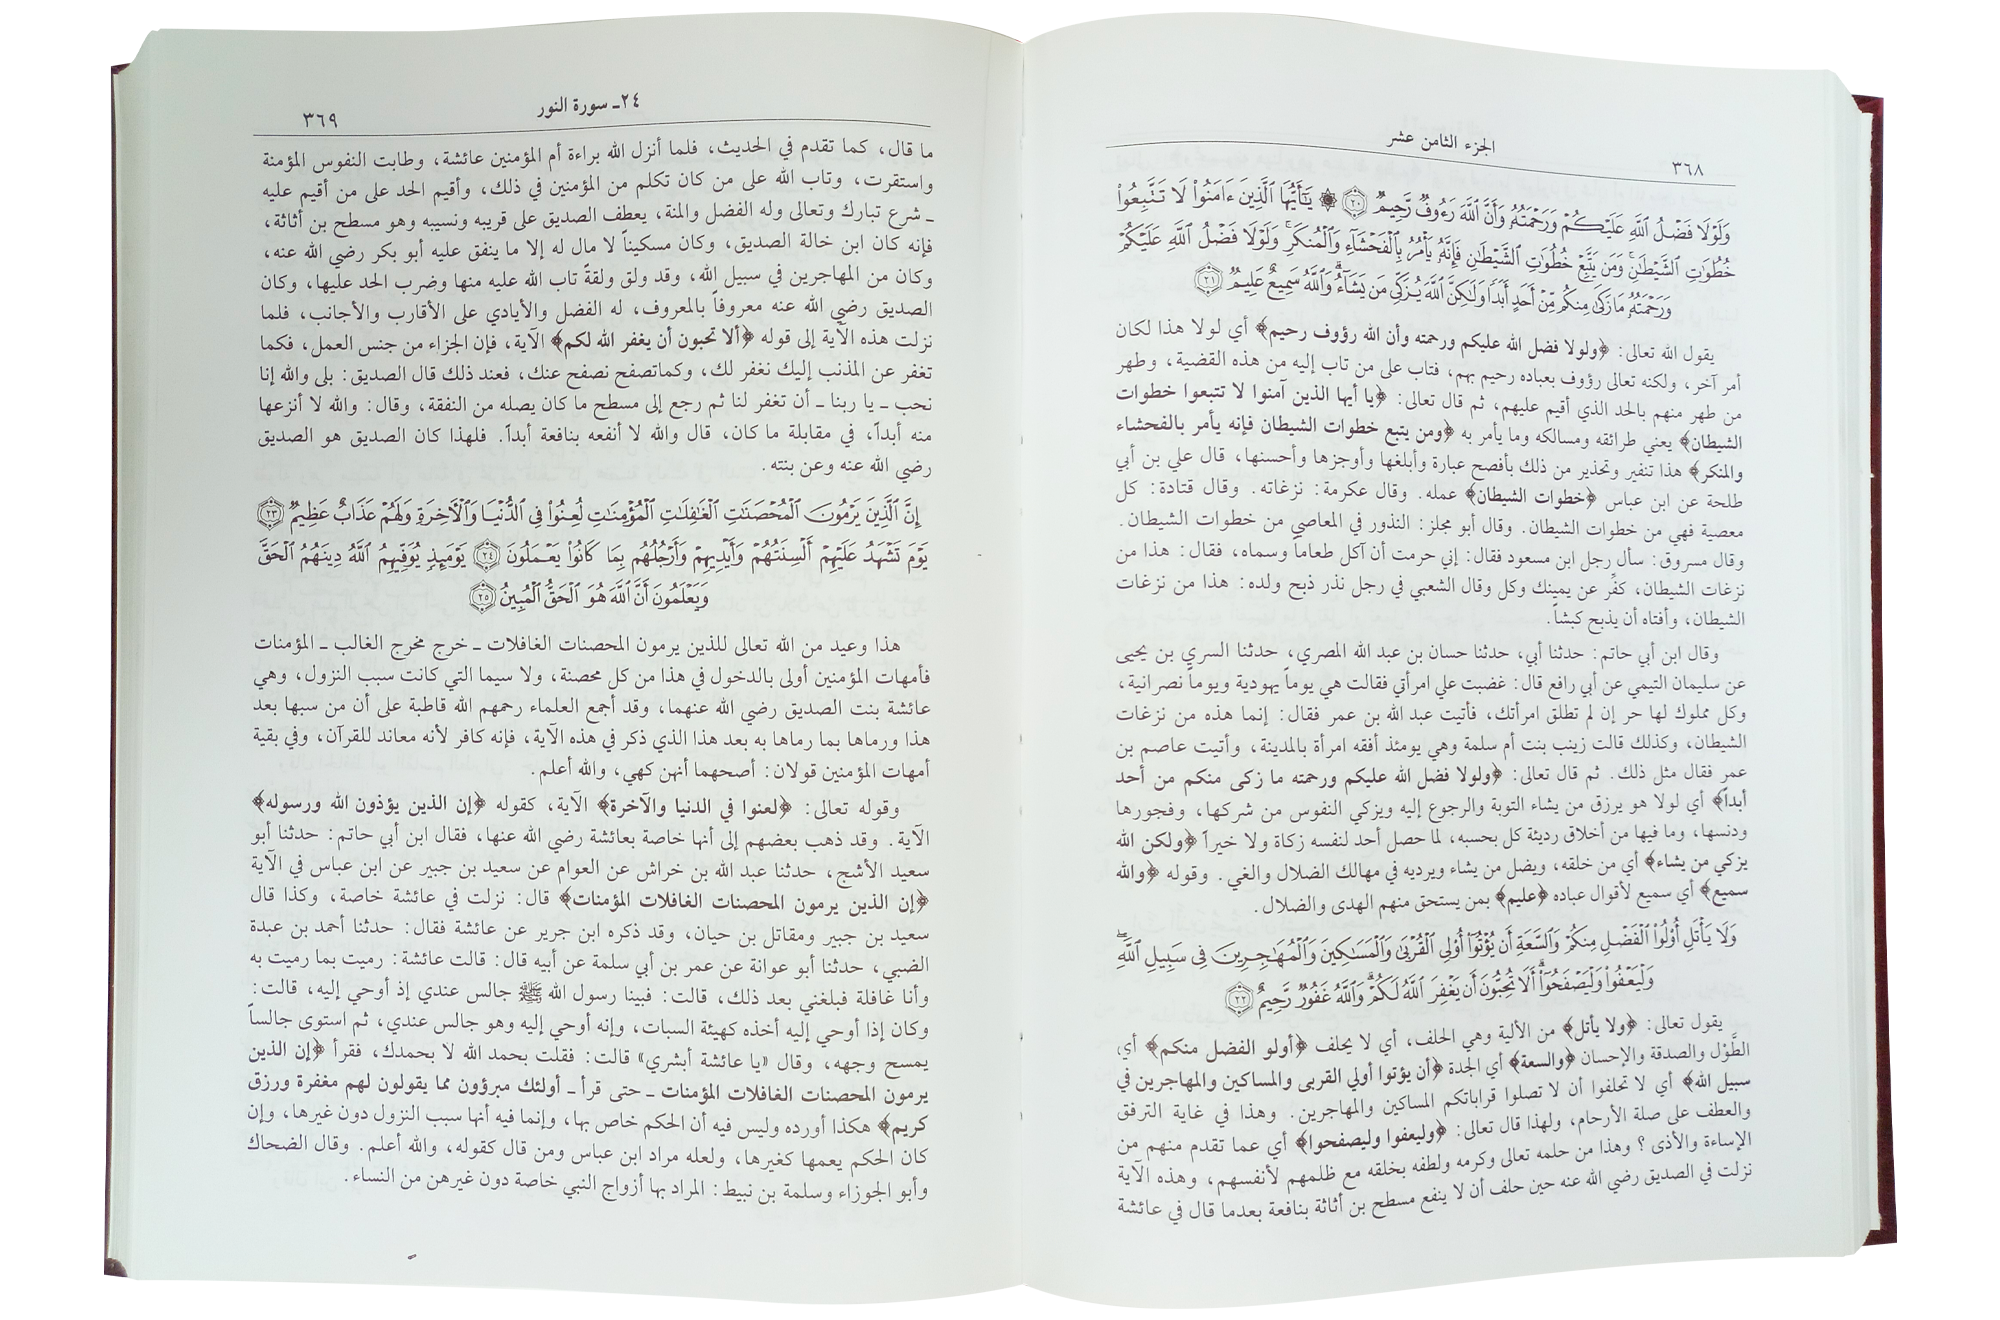 الجزء الثامن عشر
٣٦٨
وَلَوْلَا فَضْلُ ٱللَّهِ عَلَيْكُمْ وَرَحْمَتُهُۥ وَأَنَّ ٱللَّهَ رَءُوفٌ رَّحِيمٌ ٢٠ ۞ يَٰٓأَيُّهَا ٱلَّذِينَ ءَامَنُوا۟ لَا تَتَّبِعُوا۟
خُطُوَٰتِ ٱلشَّيْطَٰنِ ۚ وَمَن يَتَّبِعْ خُطُوَٰتِ ٱلشَّيْطَٰنِ فَإِنَّهُۥ يَأْمُرُ بِٱلْفَحْشَآءِ وَٱلْمُنكَرِ ۚ وَلَوْلَا فَضْلُ ٱللَّهِ عَلَيْكُمْ
وَرَحْمَتُهُۥ مَا زَكَىٰ مِنكُم مِّنْ أَحَدٍ أَبَدًا وَلَٰكِنَّ ٱللَّهَ يُزَكِّى مَن يَشَآءُ ۗ وَٱللَّهُ سَمِيعٌ عَلِيمٌ ٢١
يقول الله تعالى: ﴿ولولا فضل الله عليكم ورحمته وأن الله رؤوف رحيم﴾ أي لولا هذا لكان
أمر آخر، ولكنه تعالى رؤوف بعباده رحيم بهم، فتاب على من تاب إليه من هذه القضية، وطهر
من طهر منهم بالحد الذي أقيم عليهم، ثم قال تعالى: ﴿يا أيها الذين آمنوا لا تتبعوا خطوات
الشيطان﴾ يعني طرائقه ومسالكه وما يأمر به ﴿ومن يتبع خطوات الشيطان فإنه يأمر بالفحشاء
والمنكر﴾ هذا تنفير وتحذير من ذلك بأفصح عبارة وأبلغها وأوجزها وأحسنها، قال علي بن أبي
طلحة عن ابن عباس ﴿خطوات الشيطان﴾ عمله. وقال عكرمة: نزغاته. وقال قتادة: كل
معصية فهي من خطوات الشيطان. وقال أبو مجلز: النذور في المعاصي من خطوات الشيطان.
وقال مسروق: سأل رجل ابن مسعود فقال: إني حرمت أن آكل طعاماً وسماه، فقال: هذا من
نزغات الشيطان، كفِّر عن يمينك وكل وقال الشعبي في رجل نذر ذبح ولده: هذا من نزغات
الشيطان، وأفتاه أن يذبح كبشاً.
وقال ابن أبي حاتم: حدثنا أبي، حدثنا حسان بن عبد الله المصري، حدثنا السري بن يحيى
عن سليمان التيمي عن أبي رافع قال: غضبت علي امرأتي فقالت هي يوماً يهودية ويوماً نصرانية،
وكل مملوك لها حر إن لم تطلق امرأتك، فأتيت عبد الله بن عمر فقال: إنما هذه من نزغات
الشيطان، وكذلك قالت زينب بنت أم سلمة وهي يومئذ أفقه امرأة بالمدينة، وأتيت عاصم بن
عمر فقال مثل ذلك. ثم قال تعالى: ﴿ولولا فضل الله عليكم ورحمته ما زكى منكم من أحد
أبداً﴾ أي لولا هو يرزق من يشاء التوبة والرجوع إليه ويزكي النفوس من شركها، وفجورها
ودنسها، وما فيها من أخلاق رديئة كل بحسبه، لما حصل أحد لنفسه زكاة ولا خيراً ﴿ولكن الله
يزكي من يشاء﴾ أي من خلقه، ويضل من يشاء ويرديه في مهالك الضلال والغي. وقوله ﴿والله
سميع﴾ أي سميع لأقوال عباده ﴿عليم﴾ بمن يستحق منهم الهدى والضلال.
وَلَا يَأْتَلِ أُو۟لُوا۟ ٱلْفَضْلِ مِنكُمْ وَٱلسَّعَةِ أَن يُؤْتُوٓا۟ أُو۟لِى ٱلْقُرْبَىٰ وَٱلْمَسَٰكِينَ وَٱلْمُهَٰجِرِينَ فِى سَبِيلِ ٱللَّهِ ۖ
وَلْيَعْفُوا۟ وَلْيَصْفَحُوٓا۟ ۗ أَلَا تُحِبُّونَ أَن يَغْفِرَ ٱللَّهُ لَكُمْ ۗ وَٱللَّهُ غَفُورٌ رَّحِيمٌ ٢٢
يقول تعالى: ﴿ولا يأتل﴾ من الألية وهي الحلف، أي لا يحلف ﴿أولو الفضل منكم﴾ أي
الطَّوْل والصدقة والإحسان ﴿والسعة﴾ أي الجدة ﴿أن يؤتوا أولي القربى والمساكين والمهاجرين في
سبيل الله﴾ أي لا تحلفوا أن لا تصلوا قراباتكم المساكين والمهاجرين. وهذا في غاية الترفق
والعطف على صلة الأرحام، ولهذا قال تعالى: ﴿وليعفوا وليصفحوا﴾ أي عما تقدم منهم من
الإساءة والأذى؟ وهذا من حلمه تعالى وكرمه ولطفه بخلقه مع ظلمهم لأنفسهم، وهذه الآية
نزلت في الصديق رضي الله عنه حين حلف أن لا ينفع مسطح بن أثاثة بنافعة بعدما قال في عائشة
٢٤ـ سورة النور
٣٦٩
ما قال، كما تقدم في الحديث، فلما أنزل الله براءة أم المؤمنين عائشة، وطابت النفوس المؤمنة
واستقرت، وتاب الله على من كان تكلم من المؤمنين في ذلك، وأقيم الحد على من أقيم عليه
ـ شرع تبارك وتعالى وله الفضل والمنة، يعطف الصديق على قريبه ونسيبه وهو مسطح بن أثاثة،
فإنه كان ابن خالة الصديق، وكان مسكيناً لا مال له إلا ما ينفق عليه أبو بكر رضي الله عنه،
وكان من المهاجرين في سبيل الله، وقد ولق ولقةً تاب الله عليه منها وضرب الحد عليها، وكان
الصديق رضي الله عنه معروفاً بالمعروف، له الفضل والأيادي على الأقارب والأجانب، فلما
نزلت هذه الآية إلى قوله ﴿ألا تحبون أن يغفر الله لكم﴾ الآية، فإن الجزاء من جنس العمل، فكما
تغفر عن المذنب إليك نغفر لك، وكماتصفح نصفح عنك، فعند ذلك قال الصديق: بلى والله إنا
نحب ـ يا ربنا ـ أن تغفر لنا ثم رجع إلى مسطح ما كان يصله من النفقة، وقال: والله لا أنزعها
منه أبداً، في مقابلة ما كان، قال والله لا أنفعه بنافعة أبداً. فلهذا كان الصديق هو الصديق
رضي الله عنه وعن بنته.
إِنَّ ٱلَّذِينَ يَرْمُونَ ٱلْمُحْصَنَٰتِ ٱلْغَٰفِلَٰتِ ٱلْمُؤْمِنَٰتِ لُعِنُوا۟ فِى ٱلدُّنْيَا وَٱلْءَاخِرَةِ وَلَهُمْ عَذَابٌ عَظِيمٌ ٢٣
يَوْمَ تَشْهَدُ عَلَيْهِمْ أَلْسِنَتُهُمْ وَأَيْدِيهِمْ وَأَرْجُلُهُم بِمَا كَانُوا۟ يَعْمَلُونَ ٢٤ يَوْمَئِذٍ يُوَفِّيهِمُ ٱللَّهُ دِينَهُمُ ٱلْحَقَّ
وَيَعْلَمُونَ أَنَّ ٱللَّهَ هُوَ ٱلْحَقُّ ٱلْمُبِينُ ٢٥
هذا وعيد من الله تعالى للذين يرمون المحصنات الغافلات ـ خرج مخرج الغالب ـ المؤمنات
فأمهات المؤمنين أولى بالدخول في هذا من كل محصنة، ولا سيما التي كانت سبب النزول، وهي
عائشة بنت الصديق رضي الله عنهما، وقد أجمع العلماء رحمهم الله قاطبة على أن من سبها بعد
هذا ورماها بما رماها به بعد هذا الذي ذكر في هذه الآية، فإنه كافر لأنه معاند للقرآن، وفي بقية
أمهات المؤمنين قولان: أصحهما أنهن كهي، والله أعلم.
وقوله تعالى: ﴿لعنوا في الدنيا والآخرة﴾ الآية، كقوله ﴿إن الذين يؤذون الله ورسوله﴾
الآية. وقد ذهب بعضهم إلى أنها خاصة بعائشة رضي الله عنها، فقال ابن أبي حاتم: حدثنا أبو
سعيد الأشج، حدثنا عبد الله بن خراش عن العوام عن سعيد بن جبير عن ابن عباس في الآية
﴿إن الذين يرمون المحصنات الغافلات المؤمنات﴾ قال: نزلت في عائشة خاصة، وكذا قال
سعيد بن جبير ومقاتل بن حيان، وقد ذكره ابن جرير عن عائشة فقال: حدثنا أحمد بن عبدة
الضبي، حدثنا أبو عوانة عن عمر بن أبي سلمة عن أبيه قال: قالت عائشة: رميت بما رميت به
وأنا غافلة فبلغني بعد ذلك، قالت: فبينا رسول الله ﷺ جالس عندي إذ أوحي إليه، قالت:
وكان إذا أوحي إليه أخذه كهيئة السبات، وإنه أوحي إليه وهو جالس عندي، ثم استوى جالساً
يمسح وجهه، وقال «يا عائشة أبشري» قالت: فقلت بحمد الله لا بحمدك، فقرأ ﴿إن الذين
يرمون المحصنات الغافلات المؤمنات ـ حتى قرأ ـ أولئك مبرؤون مما يقولون لهم مغفرة ورزق
كريم﴾ هكذا أورده وليس فيه أن الحكم خاص بها، وإنما فيه أنها سبب النزول دون غيرها، وإن
كان الحكم يعمها كغيرها، ولعله مراد ابن عباس ومن قال كقوله، والله أعلم. وقال الضحاك
وأبو الجوزاء وسلمة بن نبيط: المراد بها أزواج النبي خاصة دون غيرهن من النساء.